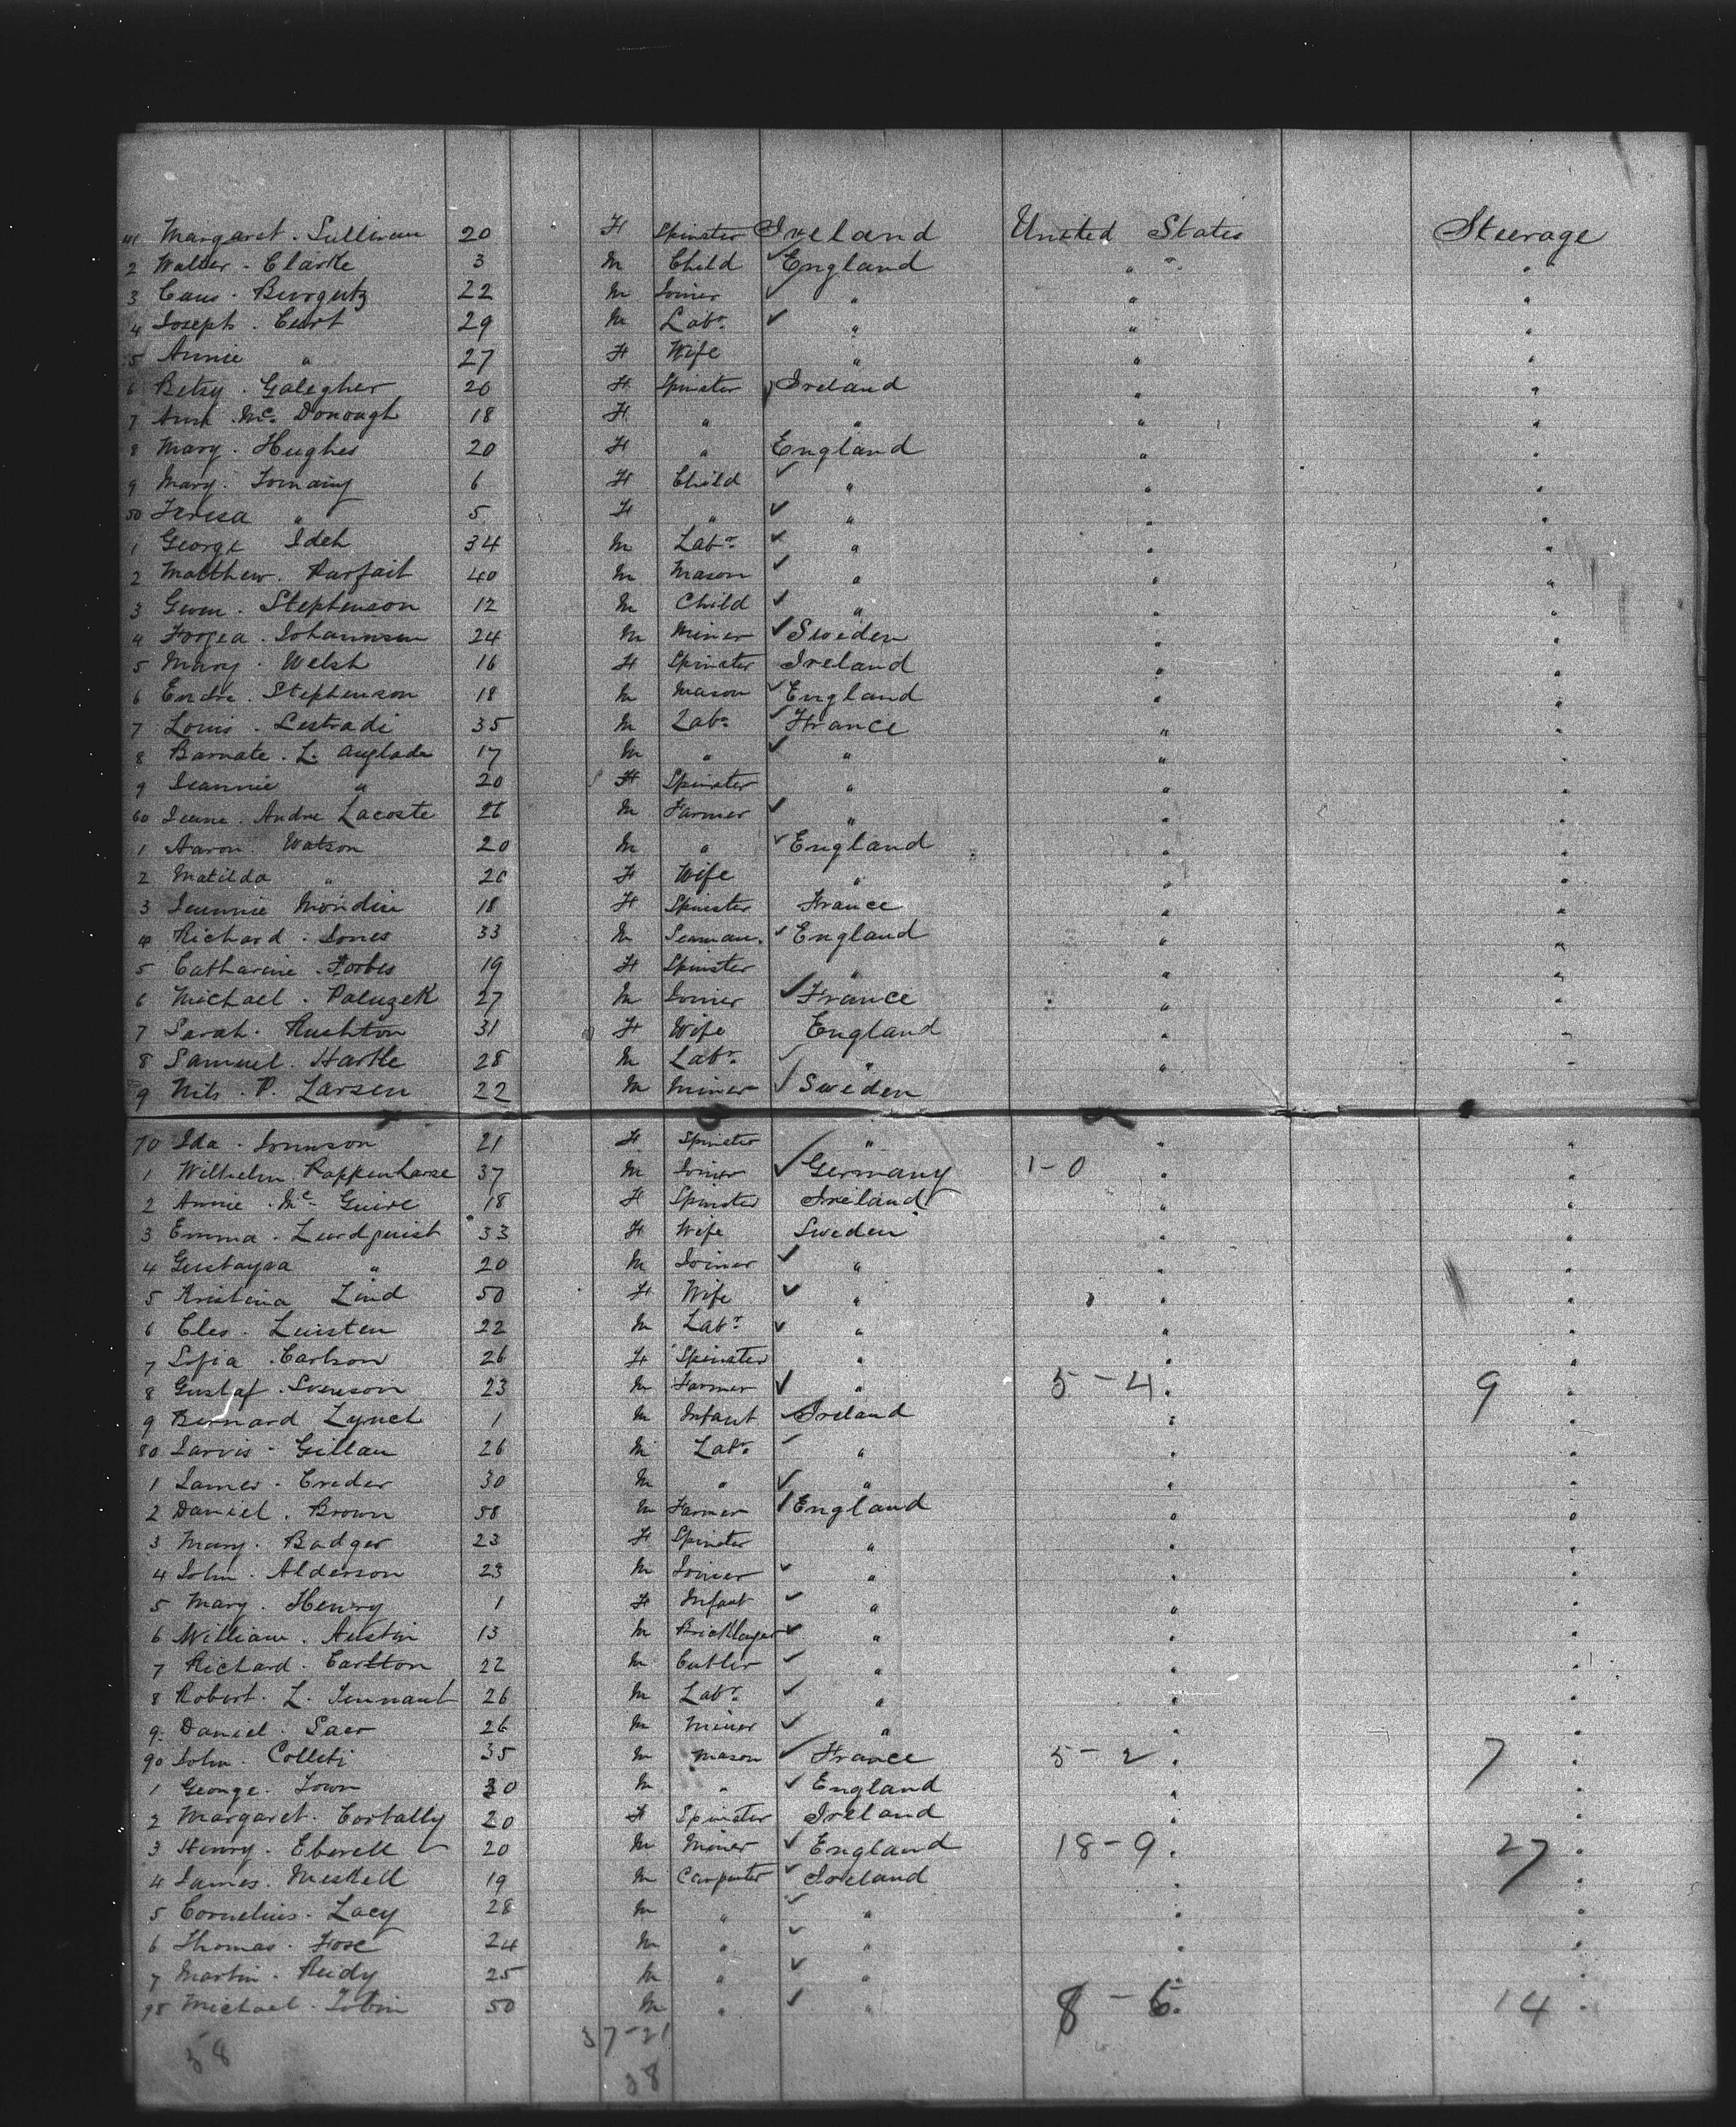 41 Margaret . Sullivan 20 F Spinster Ireland United States Steerage
2 Walter . Clarke 3 M Child ✓ England " " "
3 Caus . Burgutz 22 M Joiner ✓ " " "
4 Joseph . Curt 29 M Labr ✓ " " "
5 Annie " 27 F Wife " " "
6 Betsy . Galegher 20 F Spinster Ireland " "
7 Ann Mc Donough 18 F " " " "
8 Mary . Hughes 20 F " England " "
9 Mary . 6 F Child ✓ " " "
50 Teresa " 5 F " ✓ " " "
1 George Ideh 34 M Labr ✓ " " "
2 Matthew . Parfait 40 M Mason ✓ " " "
3 Gwen . Stephenson 12 M Child ✓ " " "
4 Johannsen 24 M Miner ✓ Sweden " "
5 Mary . Welsh 16 F Spinster Ireland " "
6 Stephenson 18 M Mason ✓ England " "
7 Louis . Lestradi 35 M Labr ✓ France " "
8 Barnate . L. Anglade 17 M " ✓ " " "
9 Jeannie " 20 F Spinster " " "
60 Jeane . Andre Lacoste 26 M Farmer ✓ " " "
1 Aaron . Watson 20 M " ✓ England " "
2 Matilda " 20 F Wife " " "
3 Jeannie Mondin 18 F Spinster France " "
4 Richard . Jones 33 M Seaman . ✓ England " "
5 Catharine . Forbes 19 F Spinster " " "
6 Michael . Paluzek 27 M Joiner ✓ France " "
7 Sarah . Rushton 31 F Wife England " "
8 Samuel . Hartle 28 M Labr ✓ " " "
9 Nils . P. Larsen 22 M Miner ✓ Sweden
70 Ida . Jonnson 21 F Spinster " " "
1 Wilhelm . Pappenharse 37 M Joiner ✓ Germany 1-0 " "
2 Annie . Mc Guire 18 F Spinster Ireland " "
3 Emma . Lundquist 33 F Wife Sweden " "
4 Gustayva " 20 M Joiner ✓ " " "
5 Kristina Lind 50 F Wife ✓ " " "
6 Cles . Luisten 22 M Labr ✓ " " "
7 Sofia . Carlson 26 F Spinster " " "
8 Gustaf . Svenson 23 M Farmer ✓ " 5-4 " 9 "
9 Bernard Lynch 1 M Infant ✓ Ireland " "
80 Jarvis . Gillan 26 M Labr ✓ " " "
1 James . Creder 30 M " ✓ " " "
2 Daniel . Brown 58 M Farmer ✓ England " "
3 Mary . Badger 23 F Spinster " " "
4 John . Alderson 23 M Joiner ✓ " " "
5 Mary . Henry 1 F Infant ✓ " " "
6 William . Austin 13 M Bricklayer ✓ " " "
7 Richard . Carlton 22 M Cutler ✓ " " "
8 Robert . L. Tennant 26 M Labr ✓ " " "
9 Daniel . Saer 26 M Miner ✓ " " "
90 John . Colleti 35 M Mason ✓ France 5-2 " 7 "
1 George . Town 30 M " ✓ England " "
2 Margaret . Cortally 20 F Spinster Ireland " "
3 Henry . Eberell 20 M Miner ✓ England 18-9 " 27 "
4 James . Meskell 19 M Carpenter ✓ Ireland " "
5 Cornelius . Lacy 28 M " ✓ " " "
6 Thomas . Fose 24 M " ✓ " " "
7 Martin . Reidy 25 M " ✓ " " "
98 Michael . Tobin 50 M " ✓ " 8-6 " 14 "
37-21
58
38